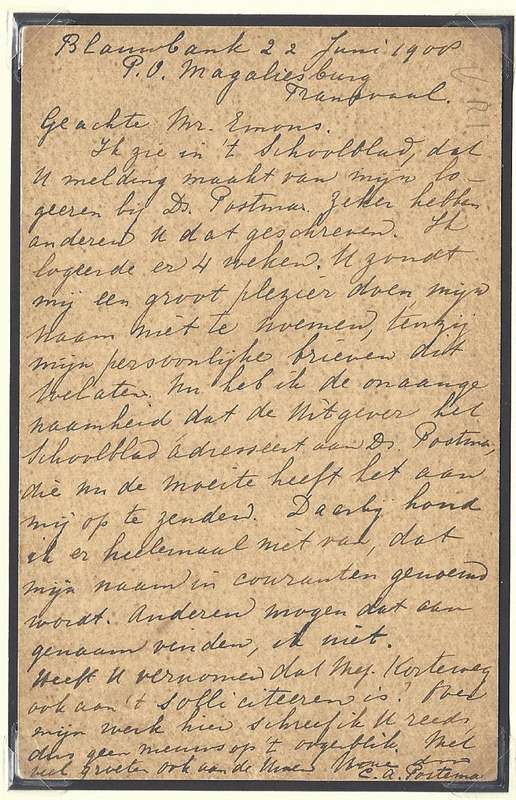 Blauwbank 22 Juni 1908
P.O. Magaliesburg
Transvaal.
Geachte Mr. Emons.
Ik zie in 't Schoolblad, dat
U melding maakt van mijn lo-
geeren bij Ds. Postma. Zeker hebben
anderen U dat geschreven. Ik
logeerde er 4 weken. U zoudt
mij een groot plezier doen mijn
naam niet te noemen, tenzij
mijn persoonlijke brieven dit
toelaten. Nu heb ik de onaange
naamheid dat de Uitgever het
Schoolblad adresseert aan Ds. Postma,
die nu de moeite heeft het aan
mij op te zenden. Daarbij houd
ik er heelemaal niet van, dat
mijn naam in couranten genoemd
wordt. Anderen mogen dat aan
genaam vinden, ik niet.
Heeft U vernomen dat Mej. Korteweg
ook aan 't solliciteeren is? Over
mijn werk hier schreef ik U reeds
dus geen nieuws op 't oogenblik. Met
veel groeten ook aan de Uwen
C. A. Postema